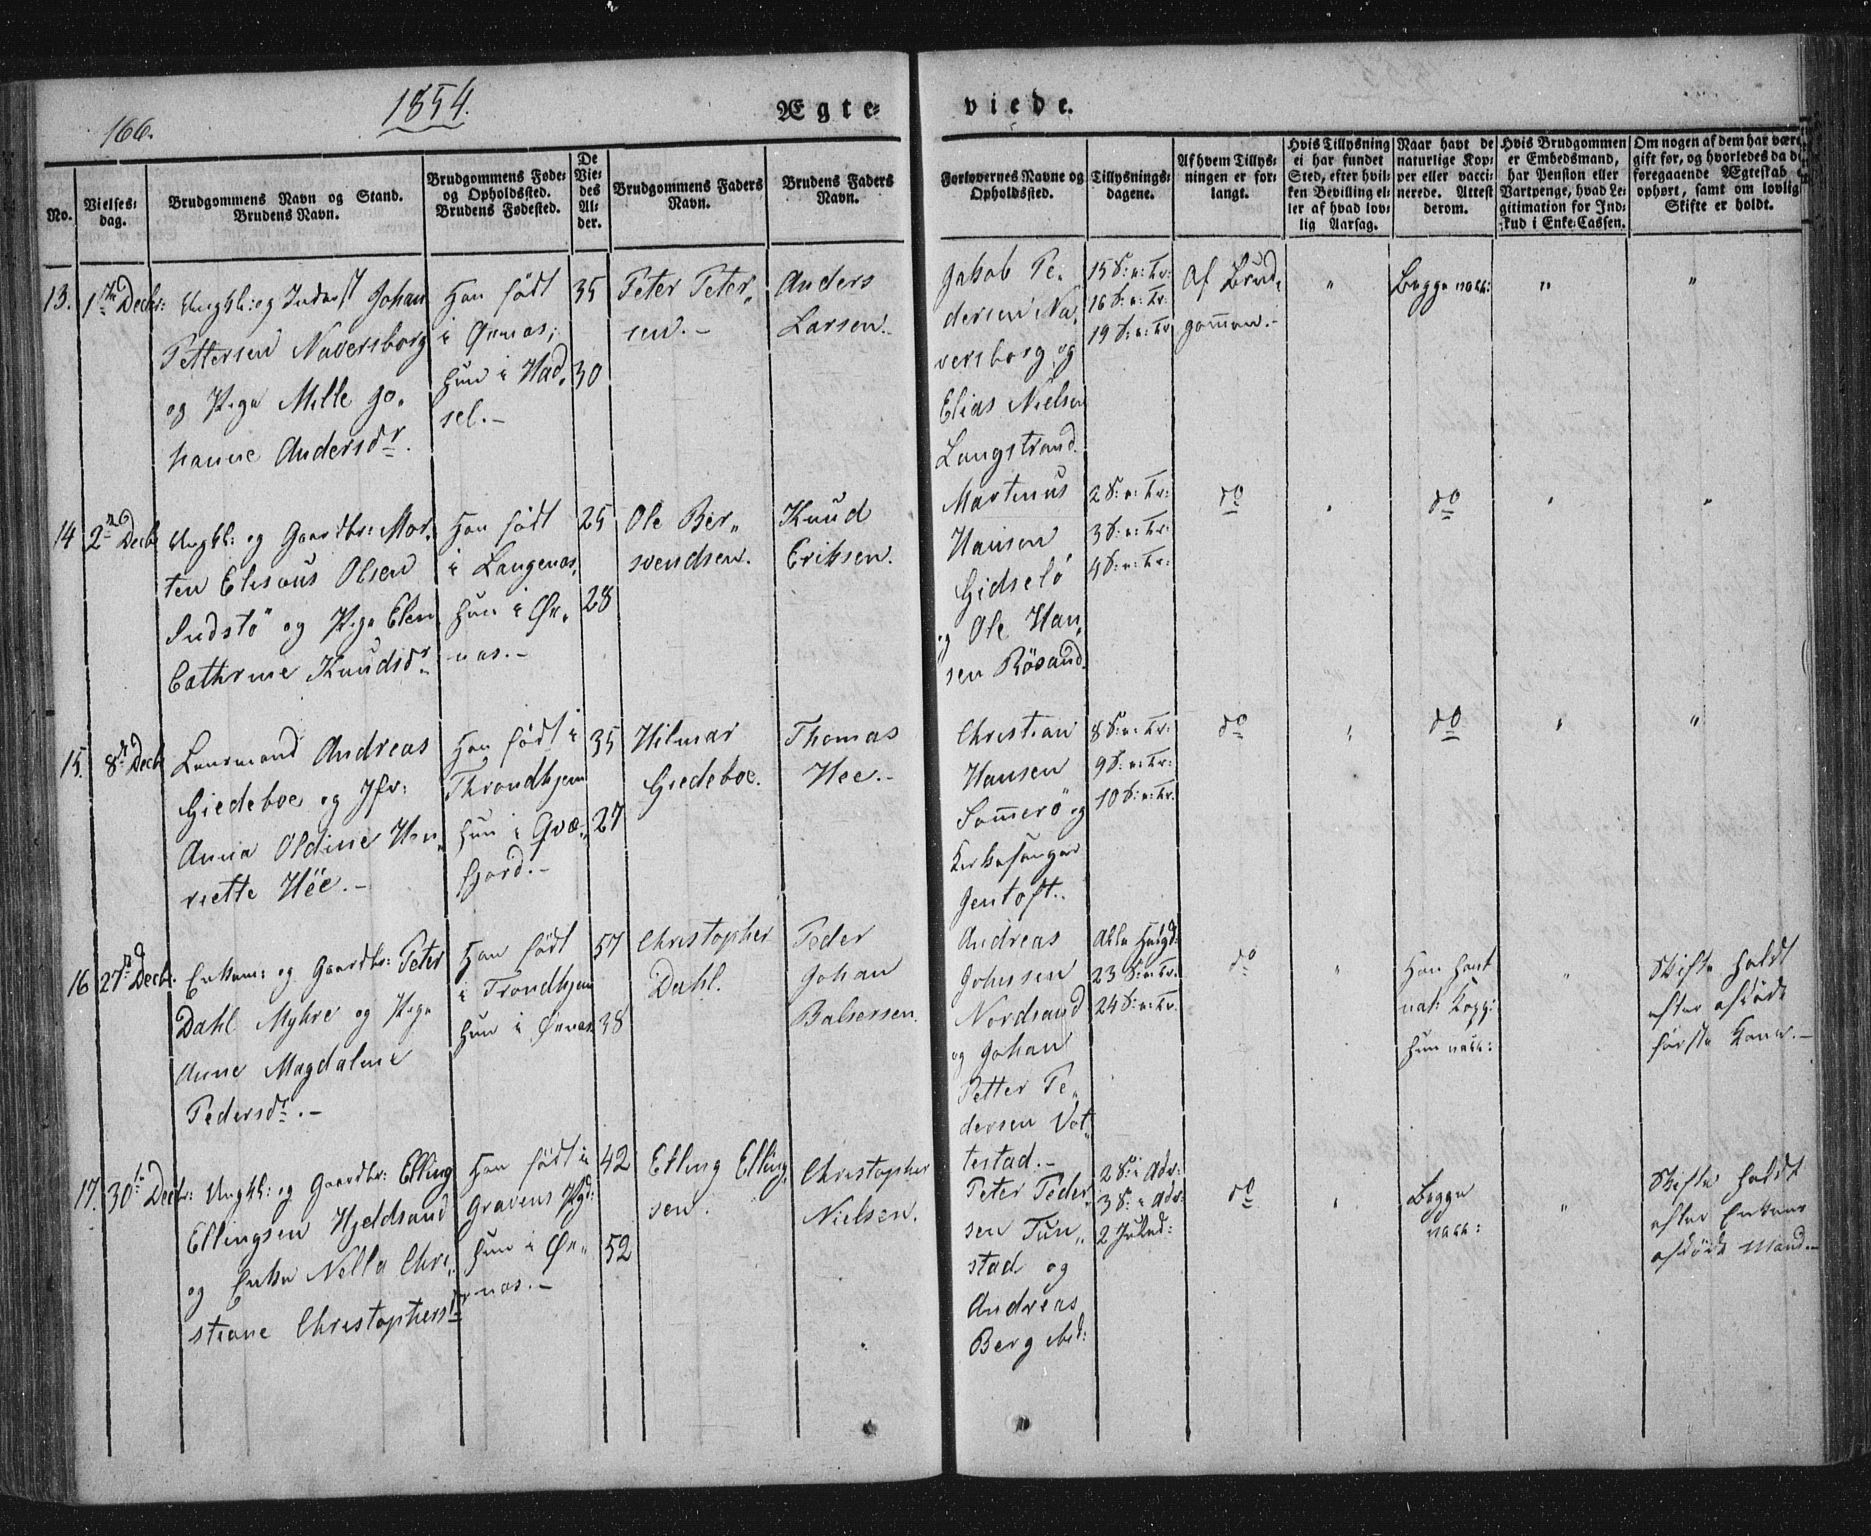 166.
1854.
Ægte-
viede.
No.
Vielses-
dag.
Brudgommens Navn og Stand.
Brudens Navn.
Brudgommens Føde-
og Opholdssted.
Brudens Fødested.
De
Vie-
des
Al-
der.
Brudgommens Faders
Navn.
Brudens Faders
Navn.
Forlovernes Navne og
Opholdssted.
Tillysnings-
dagene.
Af hvem Tillys-
ningen er for-
langt.
Hvis Tillysning
ei har fundet
Sted, efter hvil-
ken Bevilling el-
ler af hvad lov-
lig Aarsag.
Naar havt de
naturlige Kop-
per eller vacci-
nerede. Attest
derom.
Hvis Brudgommen
er Embedsmand,
har Pension eller
Vartpenge, hvad Le-
gitimation for Ind-
skud i Enke-Cassen.
Om nogen af dem har være
gift før, og hvorledes da d
foregaaende Ægteskab
ophørt, samt om lovlig
Skifte er holdt.
13.
1ste Decbr:
Ungkl: og Inderst Johan
Pettersen Naversborg
og Pige Mille Jo-
hanne Andersdr.
Han født
i Øxnæs;
hun i Had-
sel.-
35
30
Peter Peter-
sen.-
Anders
Larsen.
Jakob Pe-
dersen Na-
versborg og
Elias Nielsen
Langstrand.
15 S: e: Tr:
16 S: e: Tr:
19 S: e: Tr
Af Brud-
gommen.-
"
Begge vacc:
"
"
14
2n Decbr
Ungkl: og Gaardbr: Mor-
ten Elisæus Olsen
Indstø og Pige Elen
Cathrine Knudsdr
Han født
i Langenæs,
hun i Øx-
næs.-
25
28
Ole Ber-
svendsen.
Knud
Eriksen.
Martinus
Hansen
Gidselø
og Ole Han-
sen Rösand.
2 S: e: Tr:
3 S: e: Tr:
4 S: e: Tr:
do
"
do
"
"
15.
8n Decb
Lensmand Andreas
Giedeboe og Jfr:
Anna Oldine Hen-
riette Hee.-
Han født i
Throndhjem
hun i Qvæ-
fjord.-
35
27
Hilmar
Giedeboe.
Thomas
Hee.-
Christian
Hansen
Sommerö og
Kirkesanger
Gentoft.
8 S: e: Tr:
9 S: e: Tr:
10 S: e: Tr.
do
"
do
"
"
16
27n Decbr.
Enkem: og Gaardbr: Peter
Dahl Myhre og Pige
Anne Magdalene
Pedersdr.-
Han født
i Trondhjem
hun i Øxnæs
57
38
Christopher
Dahl.
Peder
Johan
Balsersen.
Andreas
Johnsen
Nordsand
og Johan
Petter Pe-
dersen Vot-
testad.-
Alle Helgd:
23 S: e: Tr.
24 S: e: Tr.
do
"
Han havt
nat: Kopp:
hun vacc:
"
Skifte holdt
efter afdöde
første Kone.-
17.
30te Decbr:
Ungkl: og Gaardbr: Elling
Ellingsen Hjeldsand
og Enke Nella Chri-
stiane Christophersdr
Han født i
Gravens Pgd:
hun i Øx-
næs.-
42
52
Elling Elling-
sen.
Christopher
Nielsen.
Peter Peder-
sen Tun-
stad og
Andreas
Berg ibid:
2 S: i Adv:
3 S: i Adv:
2 Juled:
do
"
Begge
vacc:
"
Skifte holdt
efter Enkens
afdöde Mand.-